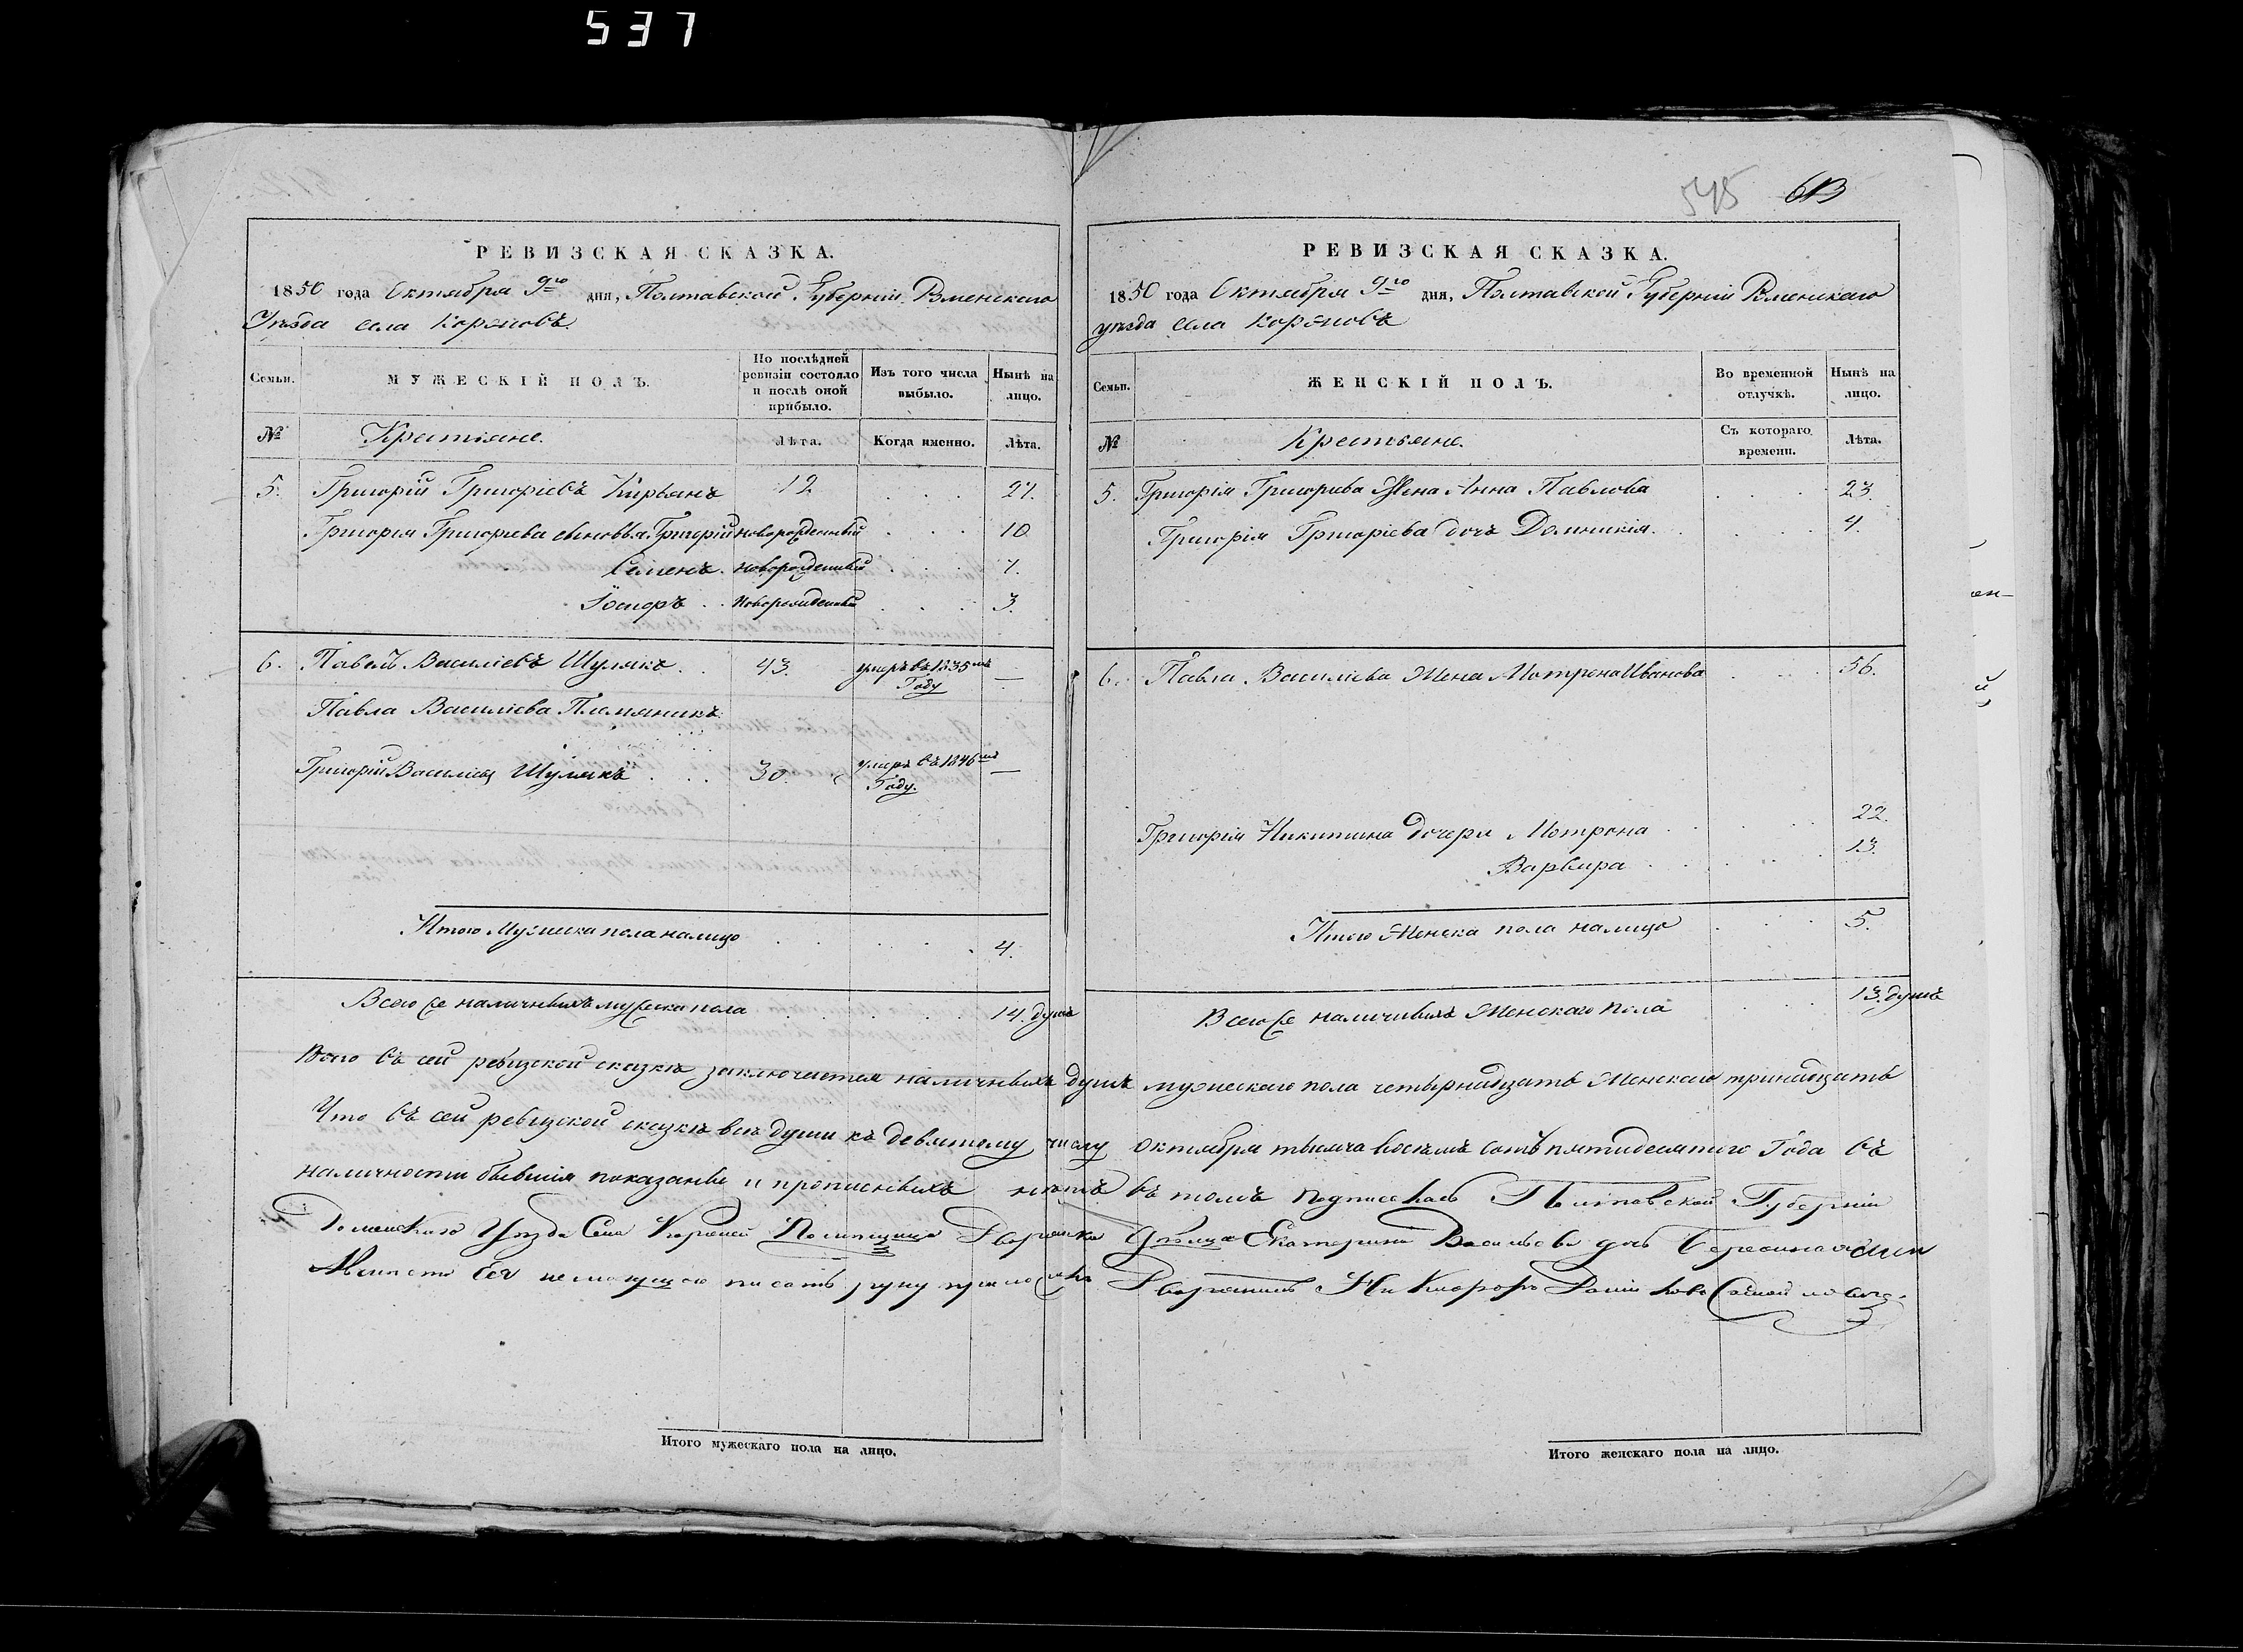 537
545 613
РЕВИЗСКАЯ СКАЗКА.
1850 года Октября 9го дня, Полтавской Губерніи Роменскаго
Уѣзда села Коровпсовъ
Семьи. МУЖЕСКІЙ ПОЛЪ. По послѣдней ревизіи состояло и послѣ оной прибыло. Изъ того числа выбыло. Нынѣ на лицо.
№ Крестьяне. Лѣта. Когда именно. Лѣта.
5. Григорій Григоріевъ Кирьянъ 12 27.
Григорія Григорьева сыновья Григорій новорожденный 10
Семенъ новорожденный 7.
новорожденный 3.
6. Павелъ Василіевъ Шулякъ 43. умеръ въ 1835мъ Году —
Павла Василіева Племяникъ
Григорій Василіевъ Шулякъ 30. умеръ въ 1846мъ Году. —
Итого Мужеска пола на лицо 4.
Всего же наличныхъ мужеска пола 14. душъ
РЕВИЗСКАЯ СКАЗКА.
1850 года Октября 9го дня, Полтавской Губерніи Роменскаго
уѣзда села
Семьи. ЖЕНСКІЙ ПОЛЪ. Во временной отлучкѣ. Нынѣ на лицо.
№ Крестьяне. Съ котораго времени. Лѣта.
5. Григорія Григорива Жена Анна Павлова 23.
Григорія Григоріева дочь Домникія. 4.
6. Павла Василіева Жена Мотрона Иванова 56.
Григорія Никитина дочери Мотрона 22.
Варвара 13.
Итого Женска пола на лицо 5.
Всего же наличныхъ Женскаго пола 13. душъ
Всего въ сей ревизской сказкѣ заключается наличныхъ душъ мужескаго пола четырнадцать Женскаго тринадцать
Что въ сей ревизской сказкѣ всѣ души къ девятому числу октября тысяча восемь сотъ пятидесятого Года въ
наличности бывшія показаны и прописныхъ нѣтъ въ томъ подписалась Полтавской Губерніи
Роменскаго Уѣзда Села Помещица Дворянка Екатерина Васильева дочь
немогущею писать руку приложилъ Дворянинъ Никифоръ
Итого мужескаго пола на лицо.
Итого женскаго пола на лицо.